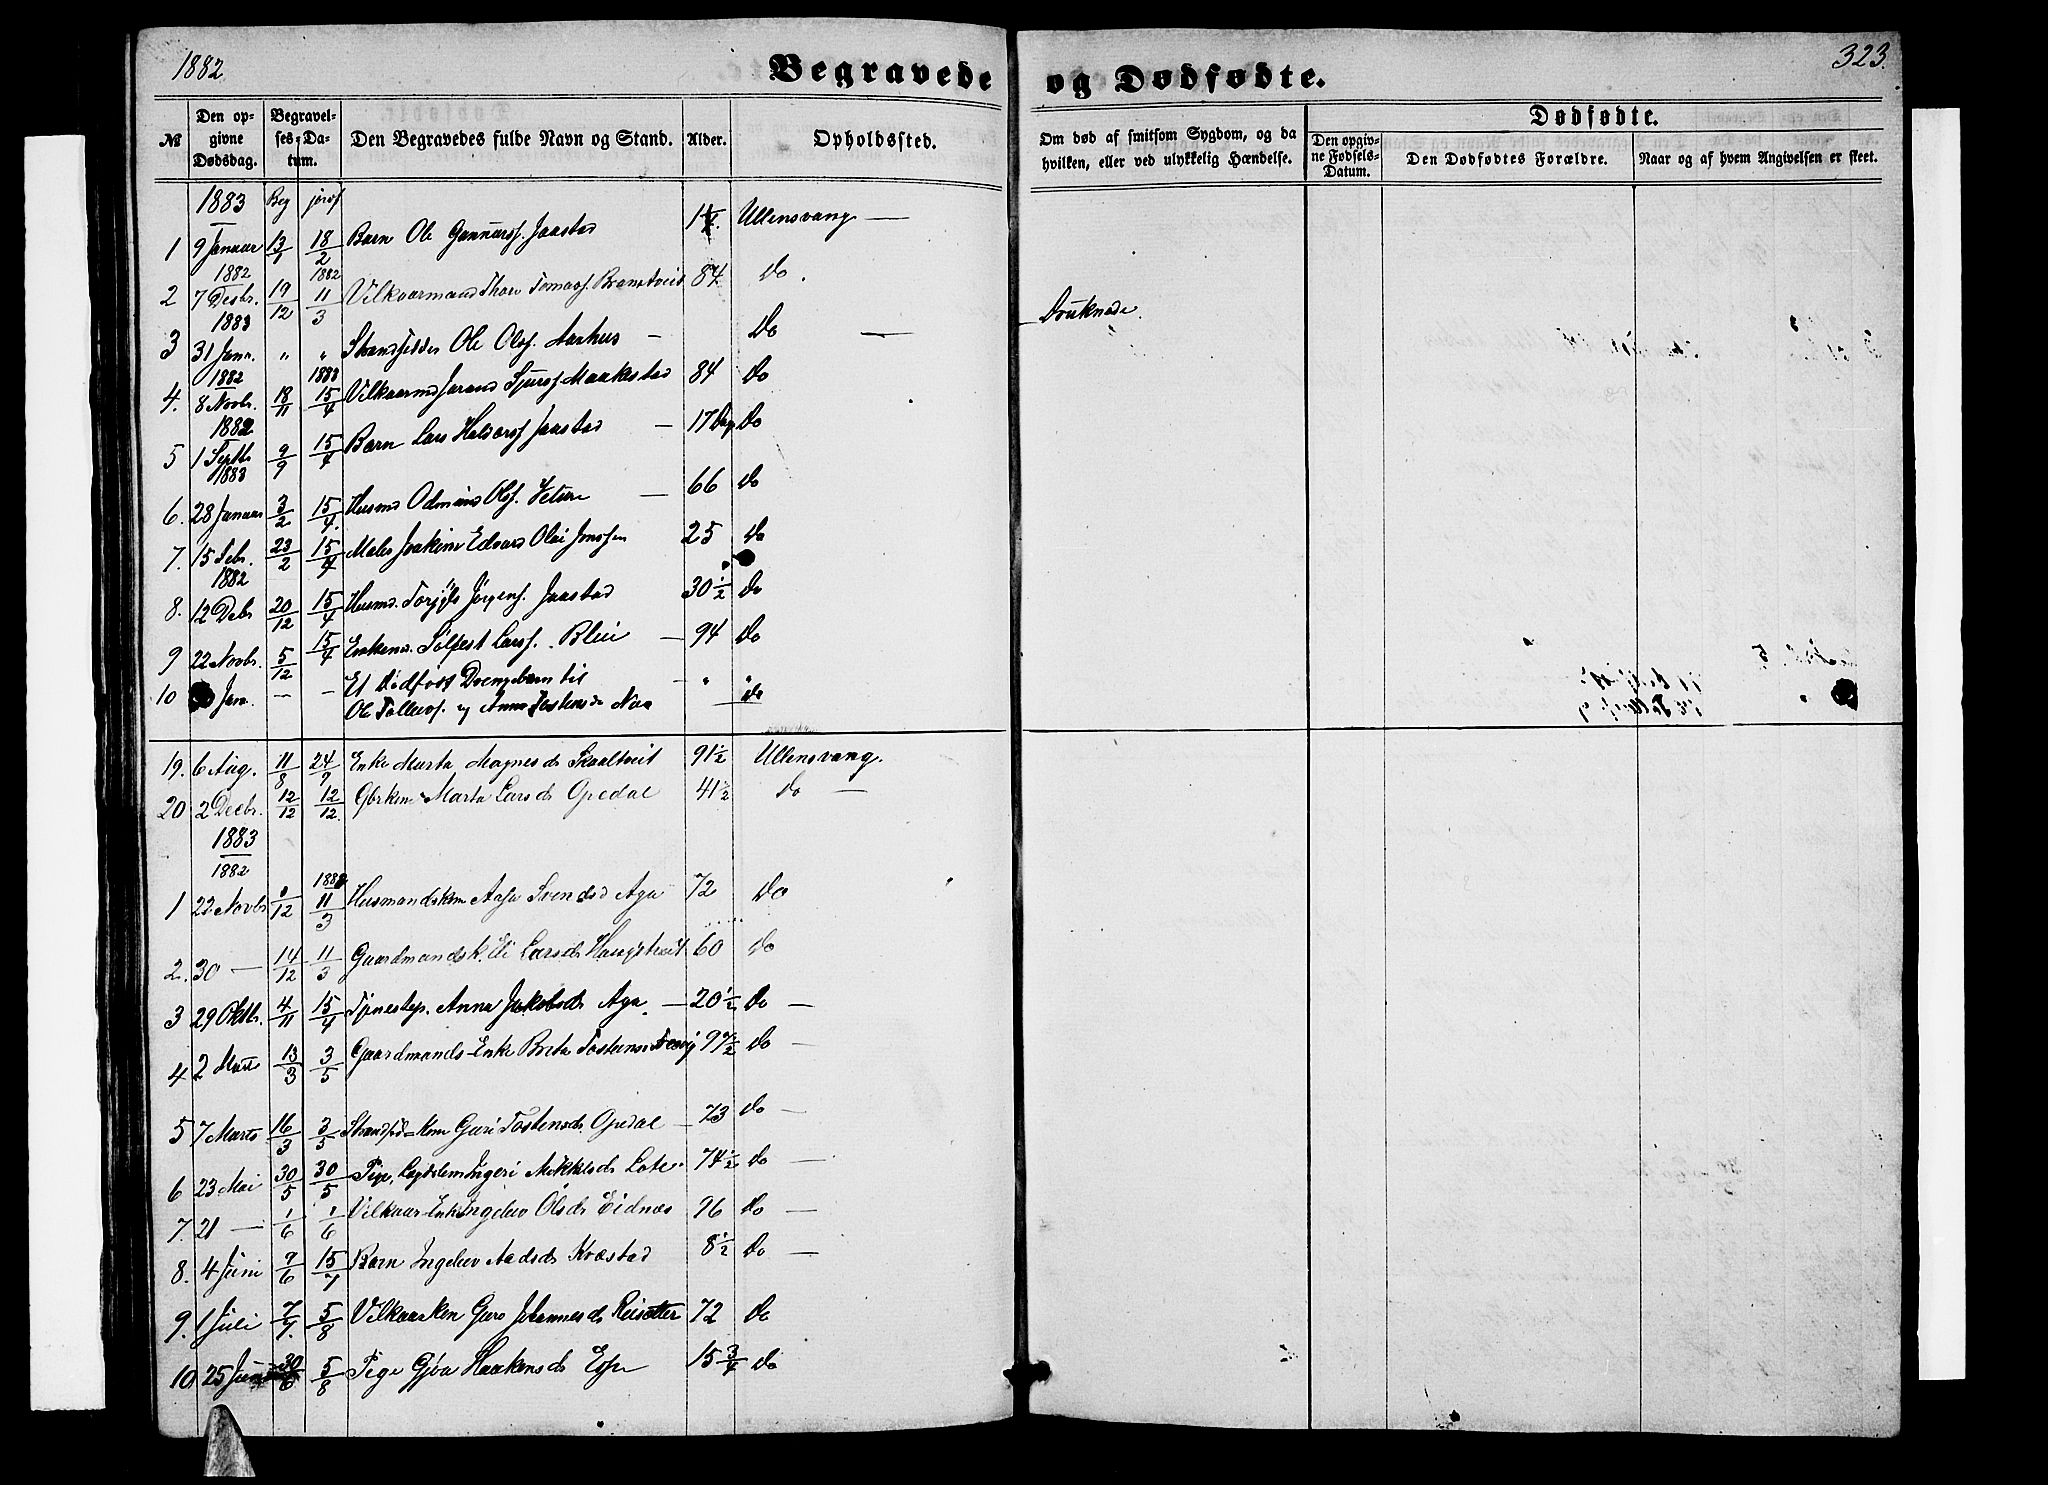 1882
Begravede og Dødfødte.
323.
№ Den opgivne Dødsdag. Begravelses-Datum. Den Begravedes fulde Navn og Stand. Alder. Opholdssted. Om død af smitsom Sygdom, og da hvilken, eller ved ulykkelig Hændelse. Dødfødte. Den opgivne Fødsels-Datum. Den Dødfødtes Forældre. Naar og af hvem Angivelsen er skeet.
1883 Beg jordf
1 9 Januar 13/1 18/2 Barn Ole Gunnarsf. Jaastad Ullensvang —
1882 1882
2 7 Desbr. 19/12 11/3 Vilkaarmand Thore Tomasf. 84 Do.
1883
3 31 Janr. " " Ole Olsf. Aarhus — Do — Druknede.
1882 1883
4. 8 Novbr. 18/11 15/4 Vilkaarmd Jarand Sjursf Maakestad 84 Do
1882
5 1 Septbr 9/9 15/4 Barn Lars Haldorsf Jaastad — 17 Dag Do
1883
6. 28 Januar 3/2 15/4. Husmd Odmund Olsf. — 66 Do
7. 15 Febr. 23/2 15/4 Maler Joakim Edvard Olai Jonssen 25 Do
1882
8. 12 Debr 20/12 15/4 Husmd. Torgils Jørgensf. Jaastad 30 1/2 Do
9 22 Novbr. 5/12 15/4 Enkemd. Sølfest Larsf. Bleie — 94 Do
10 Jan. — — Et dødfødt Drengebarn til — " "
Ole Tollevsf. og Anna Tostensd. Naa do
19. 6 Aug. 11/8 24/9 Enke Marta Magnesd Skaaltveit 91 1/2 Ullensvang.
20 2 Decbr. 12/12 12/12. Marta Larsd Opedal 41 1/2 do —
1883
1882 1883
1 22 Novbr /12 11/3 Husmandskone Aasa Svendsd Aga 72 Do
2. 30 — 14/12 11/3 Gaardmandsk. Eli Larsd Haugstveit 60 Do
3 29 Oktbr. 4/11 15/4 Tjenestep. Anna Jakobsd Aga. — 20 1/2 Do —
4 2 Marts 13/3 3/5 Gaardmands-Enke Brita Tostensd Do —
5 7 Marts 16/3 3/5 Kone Guri Tostensd. Opedal — 73 Do —
6 23 Mai 30/5 30/5 Pige, Legdslem Ingeri Mikkelsd Lote. 74 1/2 Do —
7. 21 — 1/6 1/6 Vilkaar-Enke Ingelev Olsd Eidnes 96 Do —
8. 4 Juni 9/6 15/7 Barn Ingelev Aadsd Kvæstad 8 1/2 Do —
9. 1 Juli 7/7. 5/8 Vilkaarkon Guro Johannesd Reisæter 72 Do
10 25 Juni 30/6 5/8 Pige Gjøa Haakensd Espe 15 3/4 Do